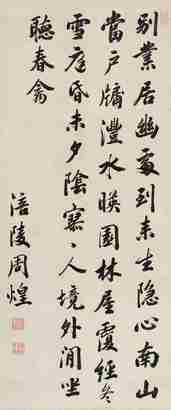 别業居幽處到来生隐心南山
當戶牖灃水暎園林屋覆經冬
雪庭昏未夕陰寥〻人境外閒坐
聽春禽
涪陵周煌